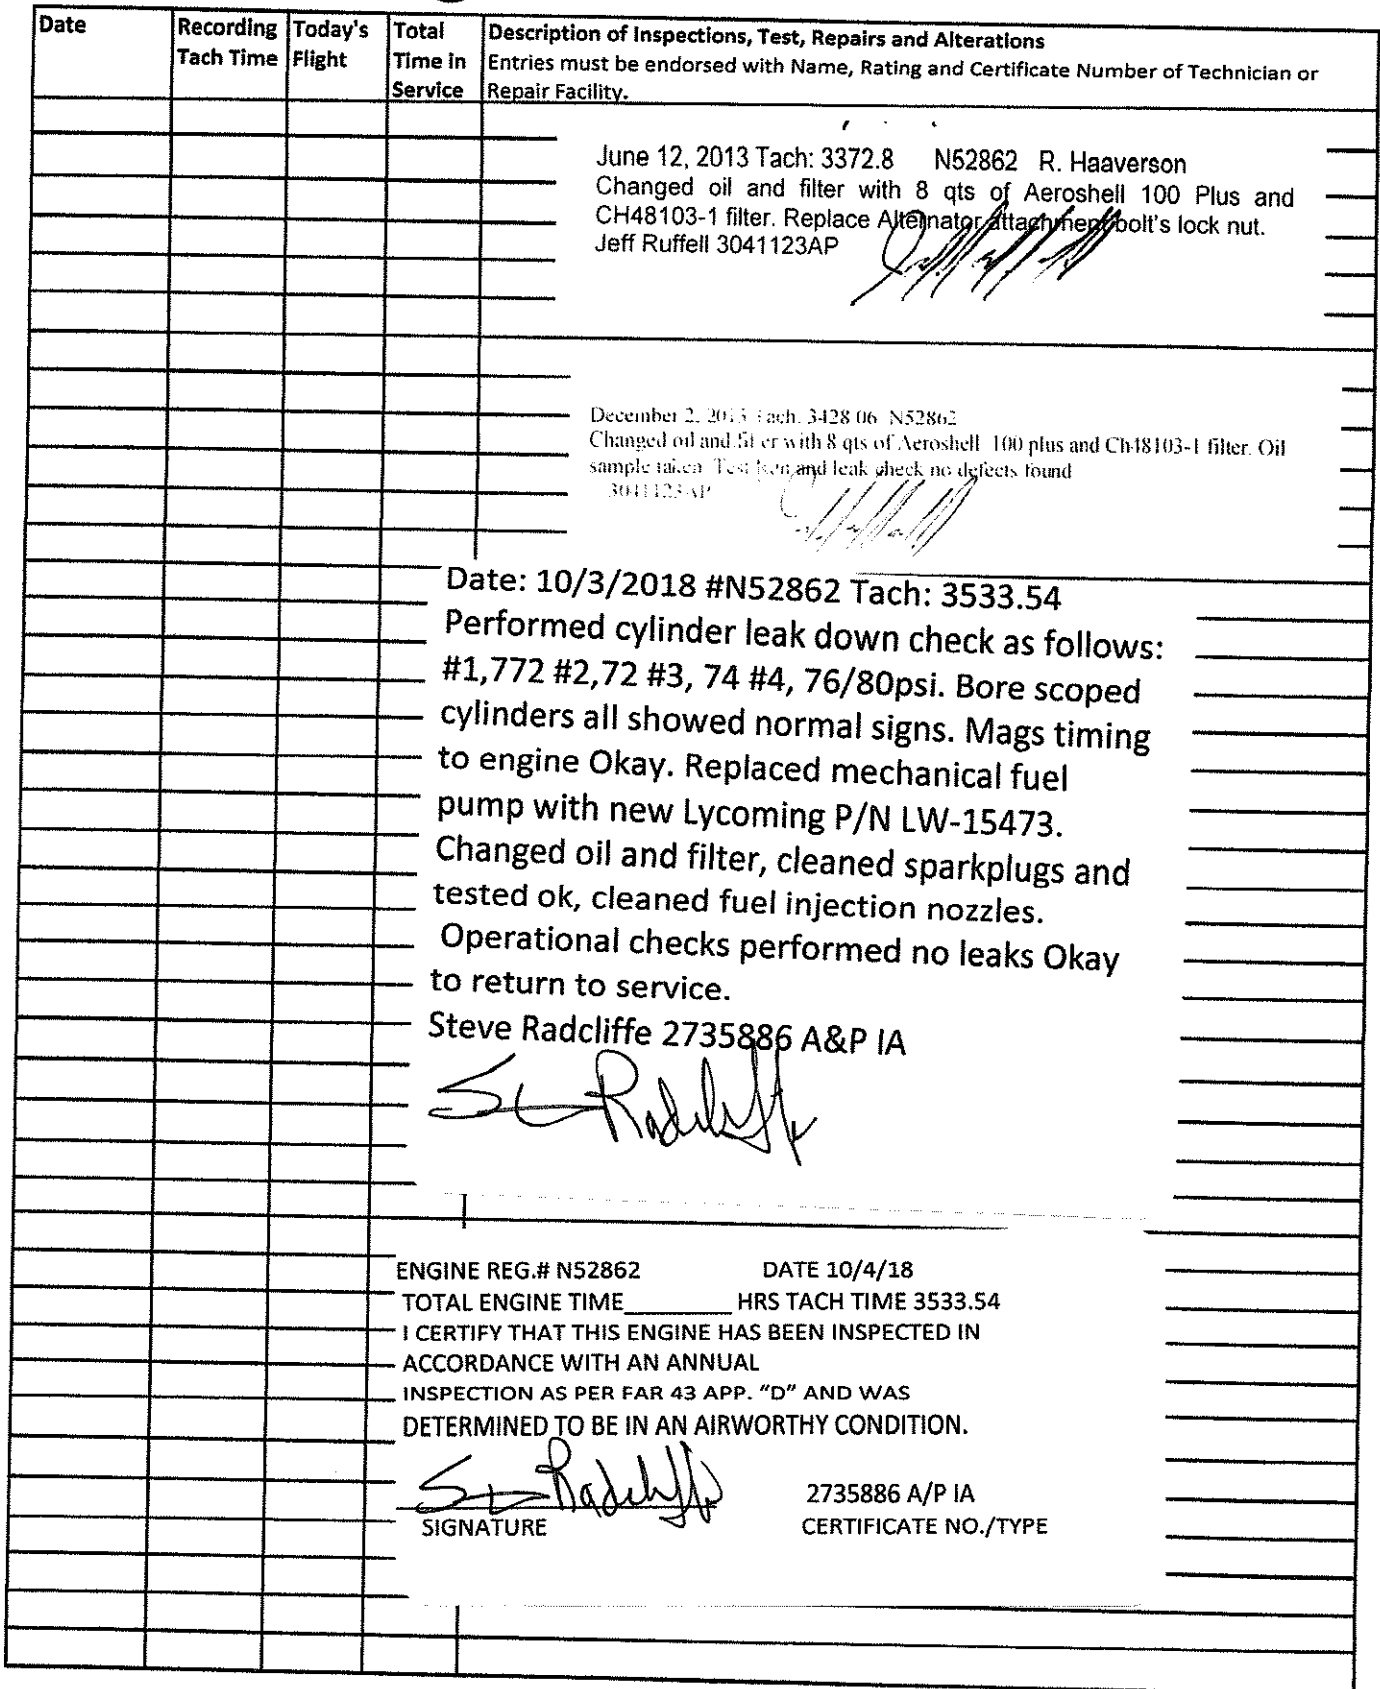 Date Recording Today's Total Description of Inspections, Test, Repairs and Alterations
Tach Time Flight Time in Entries must be endorsed with Name, Rating and Certificate Number of Technician or
Service Repair Facility.
June 12, 2013 Tach: 3372.8 N52862 R. Haaverson
Changed oil and filter with 8 qts of Aeroshell 100 Plus and
CH48103-1 filter. Replace Alternator attachment bolt's lock nut.
Jeff Ruffell 3041123AP
December 2, 2013 Tach. 3428 06 N52862
Changed oil and filter with 8 qts of Aeroshell 100 plus and Ch48103-1 filter. Oil
sample taken Test Run and leak check no defects found
3041123AP
Date: 10/3/2018 #N52862 Tach: 3533.54
Performed cylinder leak down check as follows:
#1,772 #2,72 #3, 74 #4, 76/80psi. Bore scoped
cylinders all showed normal signs. Mags timing
to engine Okay. Replaced mechanical fuel
pump with new Lycoming P/N LW-15473.
Changed oil and filter, cleaned sparkplugs and
tested ok, cleaned fuel injection nozzles.
Operational checks performed no leaks Okay
to return to service.
Steve Radcliffe 2735886 A&P IA
ENGINE REG.# N52862 DATE 10/4/18
TOTAL ENGINE TIME________ HRS TACH TIME 3533.54
I CERTIFY THAT THIS ENGINE HAS BEEN INSPECTED IN
ACCORDANCE WITH AN ANNUAL
INSPECTION AS PER FAR 43 APP. “D” AND WAS
DETERMINED TO BE IN AN AIRWORTHY CONDITION.
2735886 A/P IA
SIGNATURE CERTIFICATE NO./TYPE